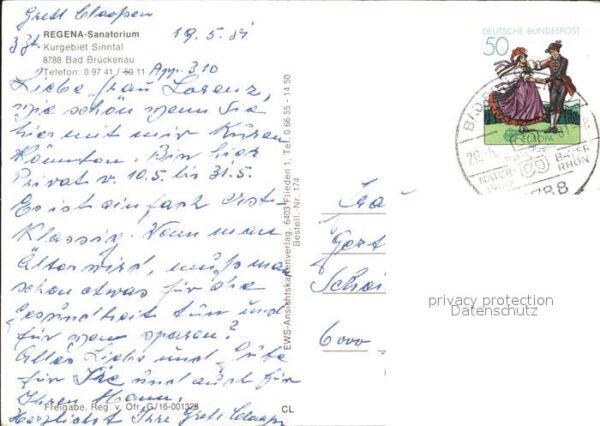 Gretl Claapen
z. Zt. REGENA-Sanatorium 19.5.81
Kurgebiet Sinntal
8788 Bad Brückenau
Telefon: 0 97 41 / 50 11 App. 310
Liebe Frau Lorenz,
wie schön wenn Sie
hier mit mir Kuren
könnten. Bin hier
Privat v. 10.5. bis 31.5.
Es ist einfach erst-
klassig. Wenn man
älter wird, muß man
schon etwas für die
Gesundheit tun und
für wen sparen?
Alles Liebe und Gute
für Sie und auch für
Ihren Mann.
Herzlichst Ihre Gretl Claapen
Freigabe, Reg. v. Ofr. G/16-001328
CL
EWS-Ansichtskartenverlag, 6403 Flieden 1, Tel. 0 66 55 - 14 50
Bestell.-Nr. 174
DEUTSCHE BUNDESPOST
50
EUROPA
BAD
NATUR-
BAYER
RHÖN
788
Gert
6000
privacy protection
Datenschutz